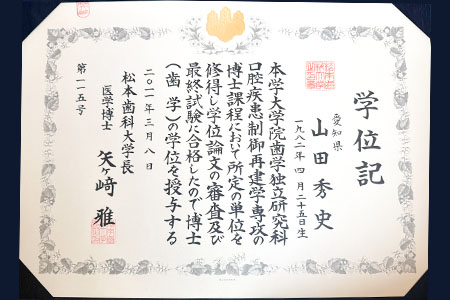 学位記
愛知県
山田秀史
一九八二年四月二十五日生
本学大学院歯学独立研究科
口腔疾患制御再建学専攻の
博士課程において所定の単位を
修得し学位論文の審査及び
最終試験に合格したので博士
(歯学)の学位を授与する
二〇一一年三月八日
松本歯科大学長
医学博士 矢ヶ﨑 雅
第一一五号